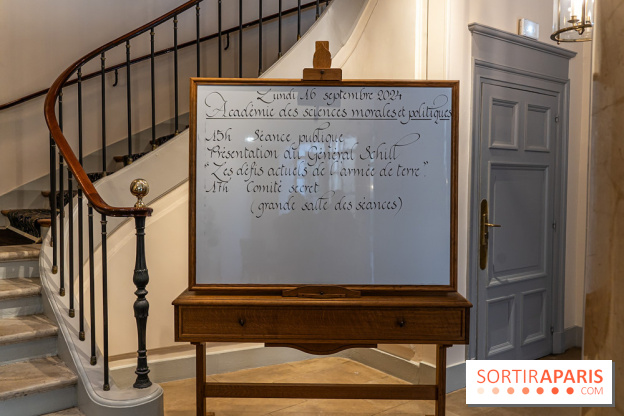 Lundi 16 septembre 2024
Académie des sciences morales et politiques
15h Séance publique
Présentation du Général Schill
"Les défis actuels de l'armée de terre".
17h Comité secret
(grande salle des séances)
SORTIRAPARIS
.COM